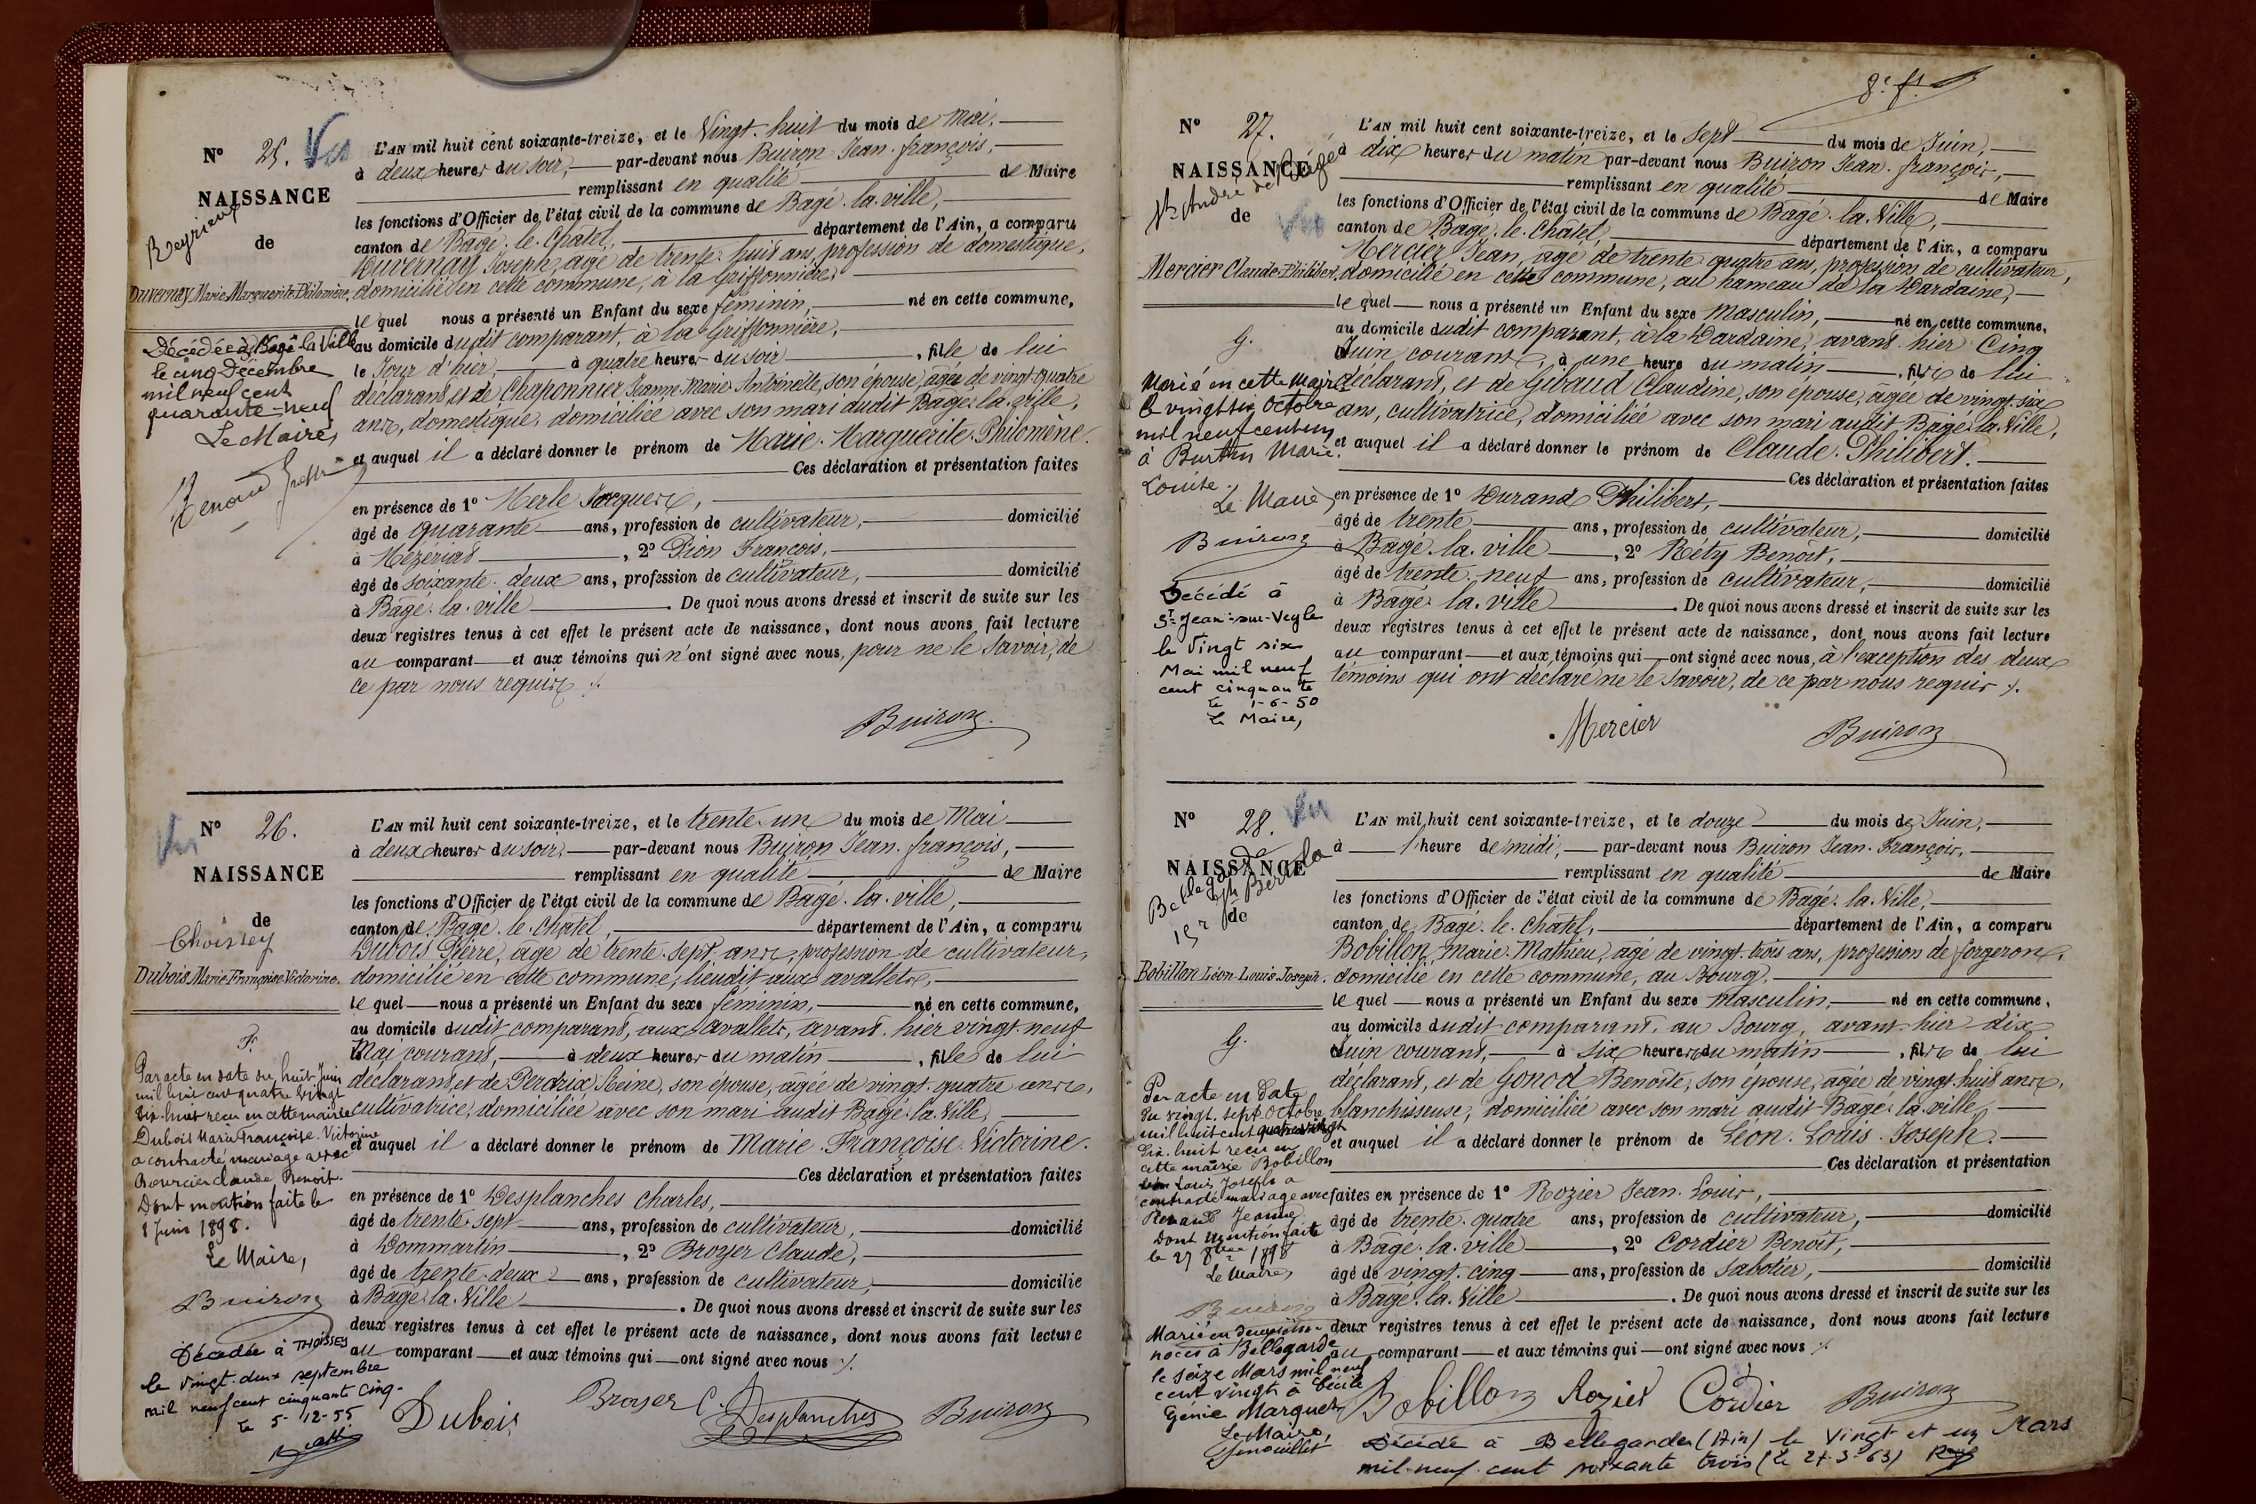 N° 25. Vu
NAISSANCE
Reyrieux
de
Duvernay Marie Marguerite Philomène.
Décédée à Bagé la Ville
le cinq Décembre
mil neuf cent
quarante-neuf
Le Maire,
L'AN mil huit cent soixante-treize, et le Vingt-huit du mois de Mai,
à deux heures du soir, par-devant nous Buiron Jean-François,
remplissant en qualité de Maire
les fonctions d'Officier de l'état civil de la commune de Bagé-la-ville,
canton de Bagé-le-Chatel, département de l'Ain, a comparu
Duvernay Joseph, âgé de trente-huit ans, profession de domestique,
domicilié en cette commune, à la Griffonnière,
le quel nous a présenté un Enfant du sexe féminin, né en cette commune,
au domicile dudit comparant, à la Griffonnière,
le Jour d'hier, à quatre heures du soir, fille de lui
déclarant et de Chaponnier Jeanne Marie Antoinette, son épouse, âgée de vingt-quatre
ans, domestique, domiciliée avec son mari audit Bagé-la-ville,
et auquel il a déclaré donner le prénom de Marie-Marguerite-Philomène.
Ces déclaration et présentation faites
en présence de 1° Merle Jacques,
âgé de quarante ans, profession de cultivateur, domicilié
à Mézériat, 2° Pion François,
âgé de soixante-deux ans, profession de cultivateur, domicilié
à Bagé-la-ville. De quoi nous avons dressé et inscrit de suite sur les
deux registres tenus à cet effet le présent acte de naissance, dont nous avons fait lecture
au comparant et aux témoins qui n'ont signé avec nous, pour ne le savoir, de
ce par nous requis ./.
Buiron
N° 26. Vu
NAISSANCE
de
Thoissey
Dubois Marie Françoise Victorine.
F.
Par acte en date du huit Juin
mil huit cent quatre vingt
dix-huit reçu en cette mairie
Dubois Marie Françoise Victorine
a contracté mariage avec
Bourcier Claude Benoit.
Dont mention faite le
8 Juin 1898.
Le Maire,
Buiron
Décédée à THOISSEY
le vingt-deux septembre
mil neuf cent cinquante cinq-
le 5-12-55
L'AN mil huit cent soixante-treize, et le trente-un du mois de Mai
à deux heures du soir, par-devant nous Buiron Jean-François,
remplissant en qualité de Maire
les fonctions d'Officier de l'état civil de la commune de Bagé-la-ville,
canton de Bagé-le-Chatel, département de l'Ain, a comparu
Dubois Pierre, âgé de trente-sept ans, profession de cultivateur,
domicilié en cette commune, lieudit aux avallets,
le quel nous a présenté un Enfant du sexe féminin, né en cette commune,
au domicile dudit comparant, aux avallets, avant-hier vingt-neuf
Mai courant, à deux heures du matin, fille de lui
déclarant et de Perdrix Reine, son épouse, âgée de vingt-quatre ans,
cultivatrice, domiciliée avec son mari audit Bagé-la-Ville,
et auquel il a déclaré donner le prénom de Marie-Françoise-Victorine.
Ces déclaration et présentation faites
en présence de 1° Desplanches Charles,
âgé de trente-sept ans, profession de cultivateur, domicilié
à Dommartin, 2° Broyer Claude,
âgé de trente-deux ans, profession de cultivateur, domicilié
à Bagé-la-Ville. De quoi nous avons dressé et inscrit de suite sur les
deux registres tenus à cet effet le présent acte de naissance, dont nous avons fait lecture
au comparant et aux témoins qui ont signé avec nous ./.
Dubois Broyer C. Desplanches Buiron
8e ft
N° 27.
NAISSANCE
St André de Bâgé
de
Vu
Mercier Claude Philibert.
G.
Marié en cette Mairie
le vingt six Octobre
mil neuf cent un
à Burtin Marie
Louise.
Le Maire,
Buiron
Décédé à
St Jean-sur-Veyle
le Vingt six
Mai mil neuf
cent cinquante
le 1-6-50
Le Maire,
L'AN mil huit cent soixante-treize, et le sept du mois de Juin,
à dix heures du matin par-devant nous Buiron Jean-François,
remplissant en qualité de Maire
les fonctions d'Officier de l'état civil de la commune de Bagé-la-Ville,
canton de Bagé-le-Chatel, département de l'Ain, a comparu
Mercier Jean, âgé de trente-quatre ans, profession de cultivateur,
domicilié en cette commune, au hameau de la Dardaine,
le quel nous a présenté un Enfant du sexe Masculin, né en cette commune,
au domicile dudit comparant, à la Dardaine, avant-hier Cinq
Juin courant, à une heure du matin, fils de lui
déclarant, et de Gibaud Claudine, son épouse, âgée de vingt-six
ans, cultivatrice, domiciliée avec son mari audit Bagé-la-Ville,
et auquel il a déclaré donner le prénom de Claude-Philibert.
Ces déclaration et présentation faites
en présence de 1° Durand Philibert,
âgé de trente ans, profession de cultivateur, domicilié
à Bagé-la-ville, 2° Réty Benoît,
âgé de trente-neuf ans, profession de cultivateur, domicilié
à Bagé-la-ville. De quoi nous avons dressé et inscrit de suite sur les
deux registres tenus à cet effet le présent acte de naissance, dont nous avons fait lecture
au comparant et aux témoins qui ont signé avec nous, à l'exception des deux
témoins qui ont déclaré ne le savoir, de ce par nous requis ./.
Mercier Buiron
N° 28. Vu
NAISSANCE
de
Bobillon Léon-Louis-Joseph.
G.
Par acte en date
du vingt-sept Octobre
mil huit cent quatre vingt
dix-huit reçu en
cette mairie Bobillon
Léon Louis Joseph a
contracté mariage avec
Renaud Jeanne
Dont mention faite
le 27 8bre 1898
Le Maire,
Buiron
Marié en deuxièmes
noces à Bellegarde
le seize Mars mil neuf
cent vingt à Cécile
Génie Marguet
Le Maire,
L'AN mil huit cent soixante-treize, et le douze du mois de Juin,
à 1 heure de midi, par-devant nous Buiron Jean-François,
remplissant en qualité de Maire
les fonctions d'Officier de l'état civil de la commune de Bagé-la-Ville,
canton de Bagé-le-Chatel, département de l'Ain, a comparu
Bobillon, Marie-Mathieu, âgé de vingt-trois ans, profession de forgeron,
domicilié en cette commune, au Bourg,
le quel nous a présenté un Enfant du sexe Masculin, né en cette commune,
au domicile dudit comparant, au Bourg, avant-hier dix
Juin courant, à six heures du matin, fils de lui
déclarant, et de Gonod Benoîte, son épouse, âgée de vingt-huit ans,
blanchisseuse, domiciliée avec son mari audit Bagé-la-ville,
et auquel il a déclaré donner le prénom de Léon-Louis-Joseph.
Ces déclaration et présentation
faites en présence de 1° Rozier Jean-Louis,
âgé de trente-quatre ans, profession de cultivateur, domicilié
à Bagé-la-ville, 2° Cordier Benoit,
âgé de vingt-cinq ans, profession de Sabotier, domicilié
à Bagé-la-Ville. De quoi nous avons dressé et inscrit de suite sur les
deux registres tenus à cet effet le présent acte de naissance, dont nous avons fait lecture
au comparant et aux témoins qui ont signé avec nous ./.
Bobillon Rozier Cordier Buiron
Décédé à Bellegarde (Ain) le vingt et un Mars
mil-neuf-cent soixante trois (le 27-3-63)